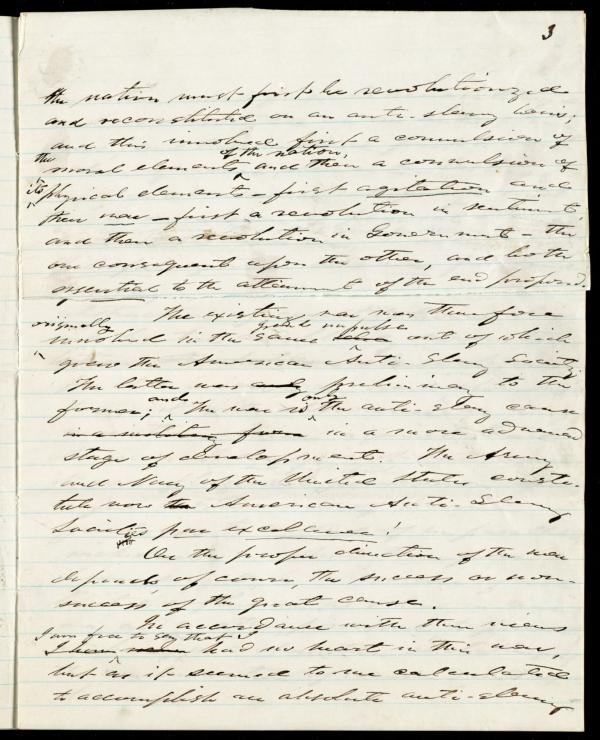 3
the nation must first be revolutionized
and reconstituted on an anti-slavery basis;
and this involved first a convulsion of
the moral elements of the nation, and then a convulsion of
its physical elements - first agitation and
then war - first a revolution in sentiment,
and then a revolution in Government - the
one consequent upon the other, and both
essential to the attainment of the end proposed.
The existing war was therefore
originally involved in the same great impulse out of which
grew the American Anti-Slavery Society.
The latter was only preliminary to the
former; and the war is only the anti-slavery cause
in a military form in a more advanced
stage of development. The Army
and Navy of the United States consti-
tute now the American Anti-Slavery
Societies par excelance!
On the proper direction of the war
depends, of course, the success or non-
success of the great cause.
In accordance with these views
I am free to say that I had no heart in this war,
but as it seemed to me calculated
to accomplish an absolute anti-slavery